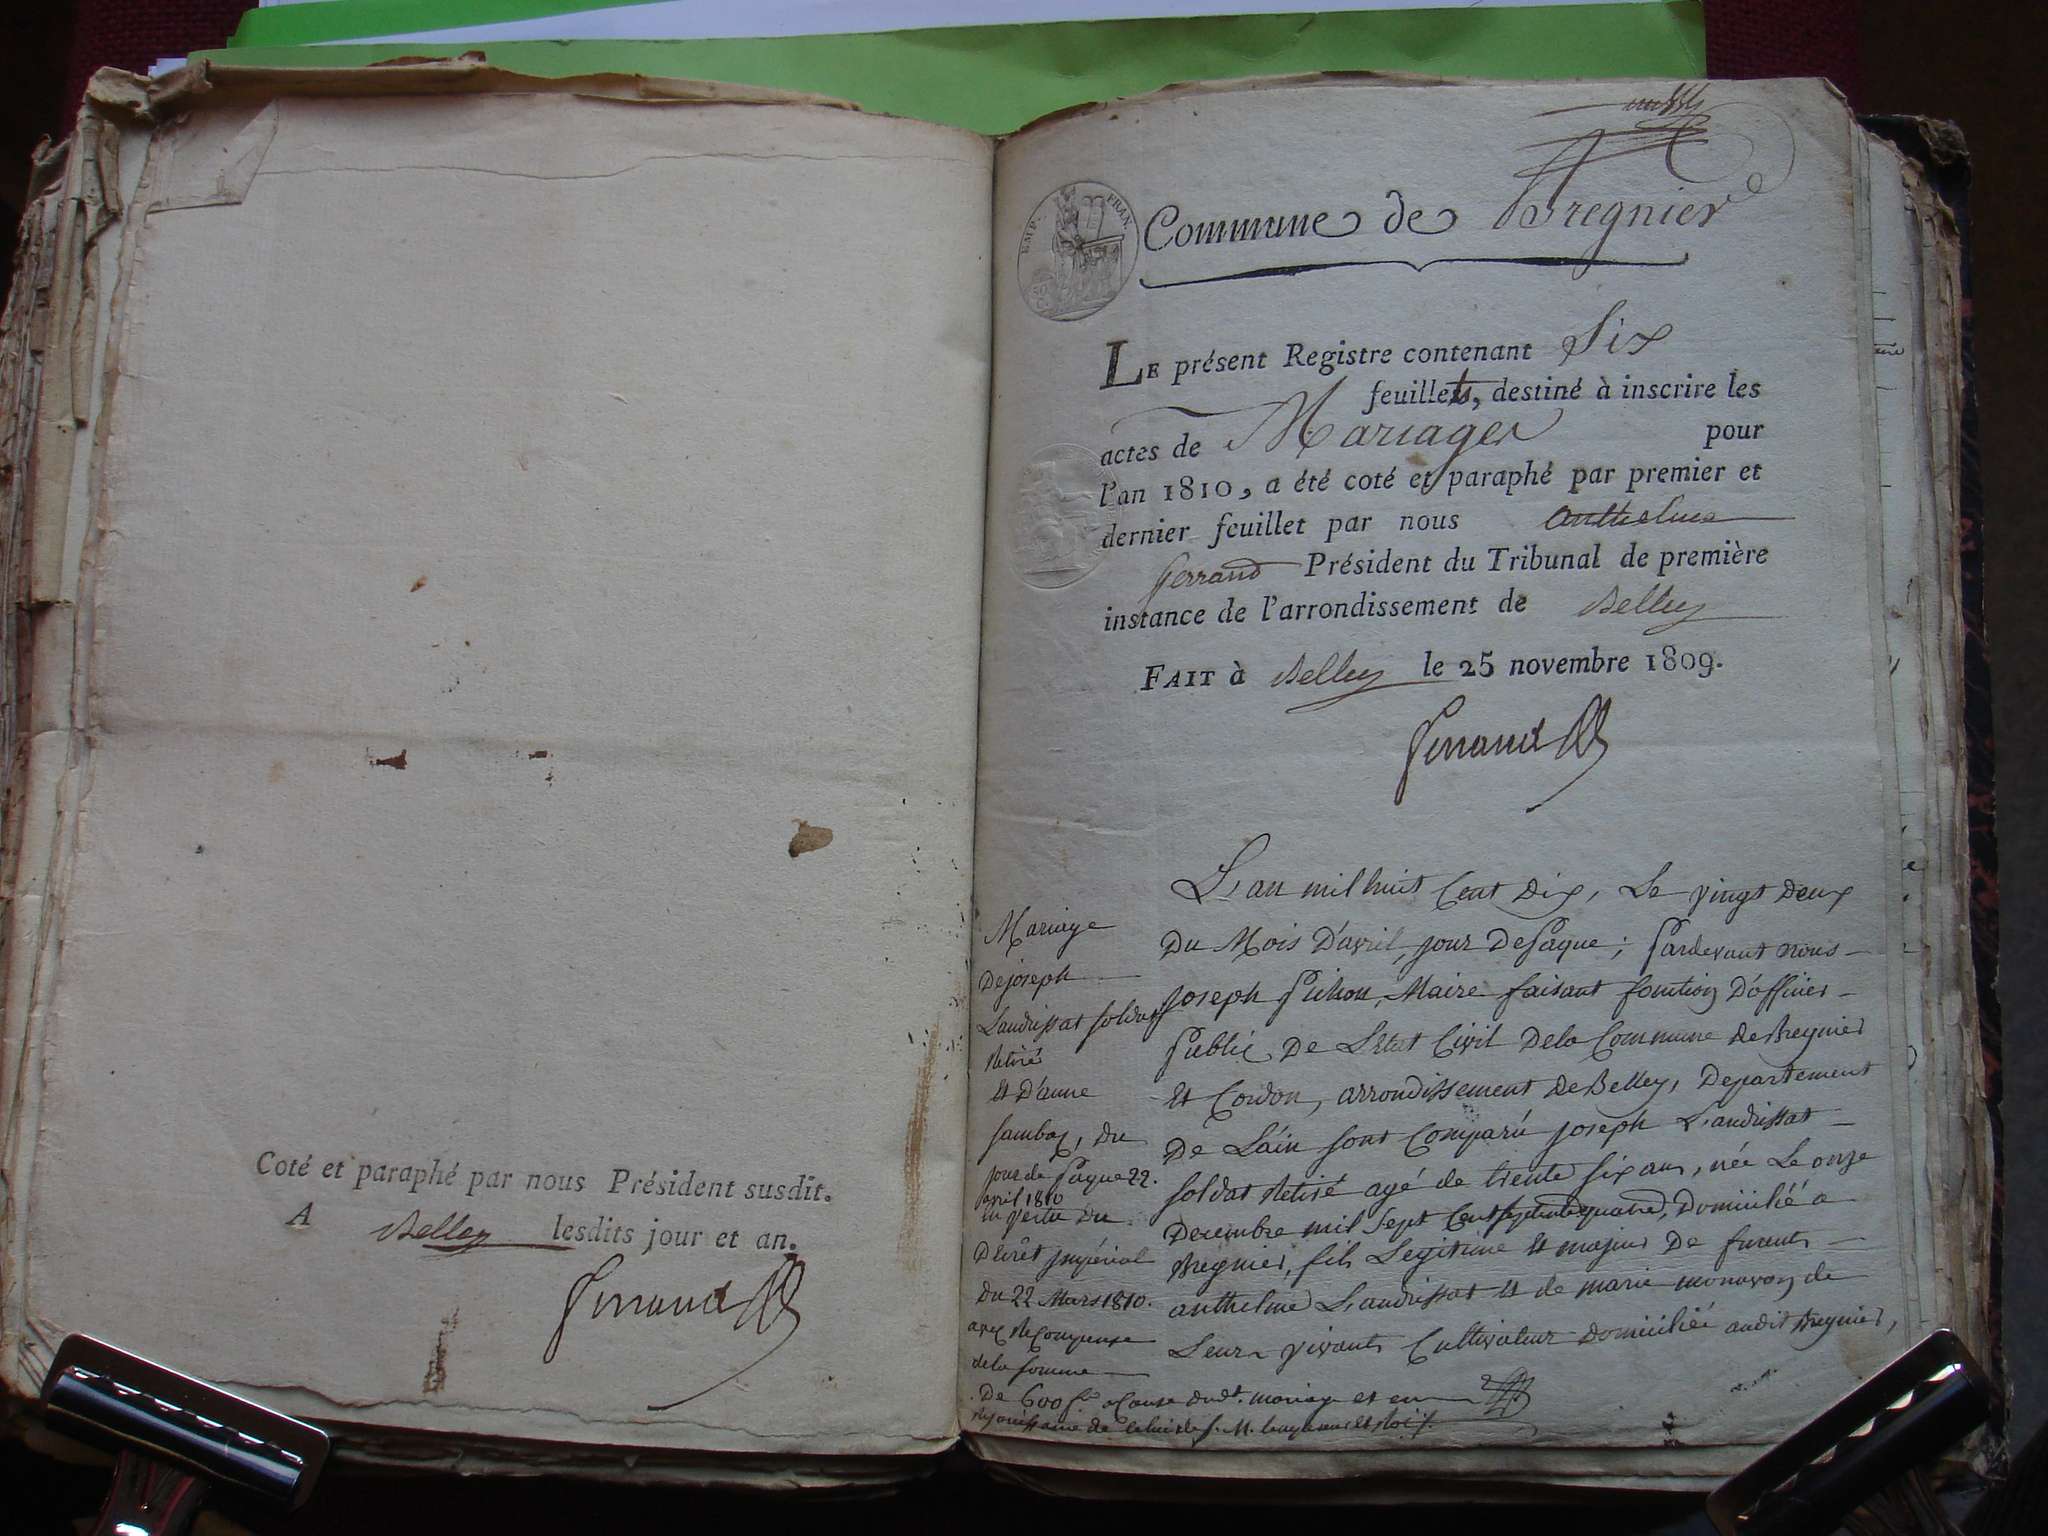 Coté et paraphé par nous Président susdit.
A Belley lesdits jour et an.
Ferrand
EMP. FRAN.
Commune de Bregnier
LE présent Registre contenant Six
feuillets, destiné à inscrire les
actes de Mariages pour
l'an 1810, a été coté et paraphé par premier et
dernier feuillet par nous anthelme
ferrand Président du Tribunal de première
instance de l'arrondissement de Belley
FAIT à Belley le 25 novembre 1809.
Ferrand
Mariage
De joseph
Landrissat soldat
Retiré
Et D'anne
sambaz, du
jour de Paque 22.
avril 1810
En vertu du
Décrêt jmpérial
Du 22 Mars 1810.
avec Recompense
de la somme
De 600 f. a Cause dudt. mariage et en
Rejouissance de celui de S. M. Empereur et Roi
L'an mil huit Cent Dix, Le vingt Deux
Du Mois D'avril, jour De Paque; Pardevant nous
Joseph Pichon, Maire faisant fonction D'officier
Public De L'Etat Civil De la Commune de Bregnier
Et Cordon, arrondissement de Belley, Departement
De L'ain sont Comparu joseph Landrissat
soldat Retiré agé de trente six ans, née Le onze
Decembre mil sept Cent septante quatre, Domicilié a
Bregnier, fils Legitime Et majeur De furent
anthelme Landrissat et de marie monavon de
Leurs vivants Cultivateur Domicilié audit Bregnier,